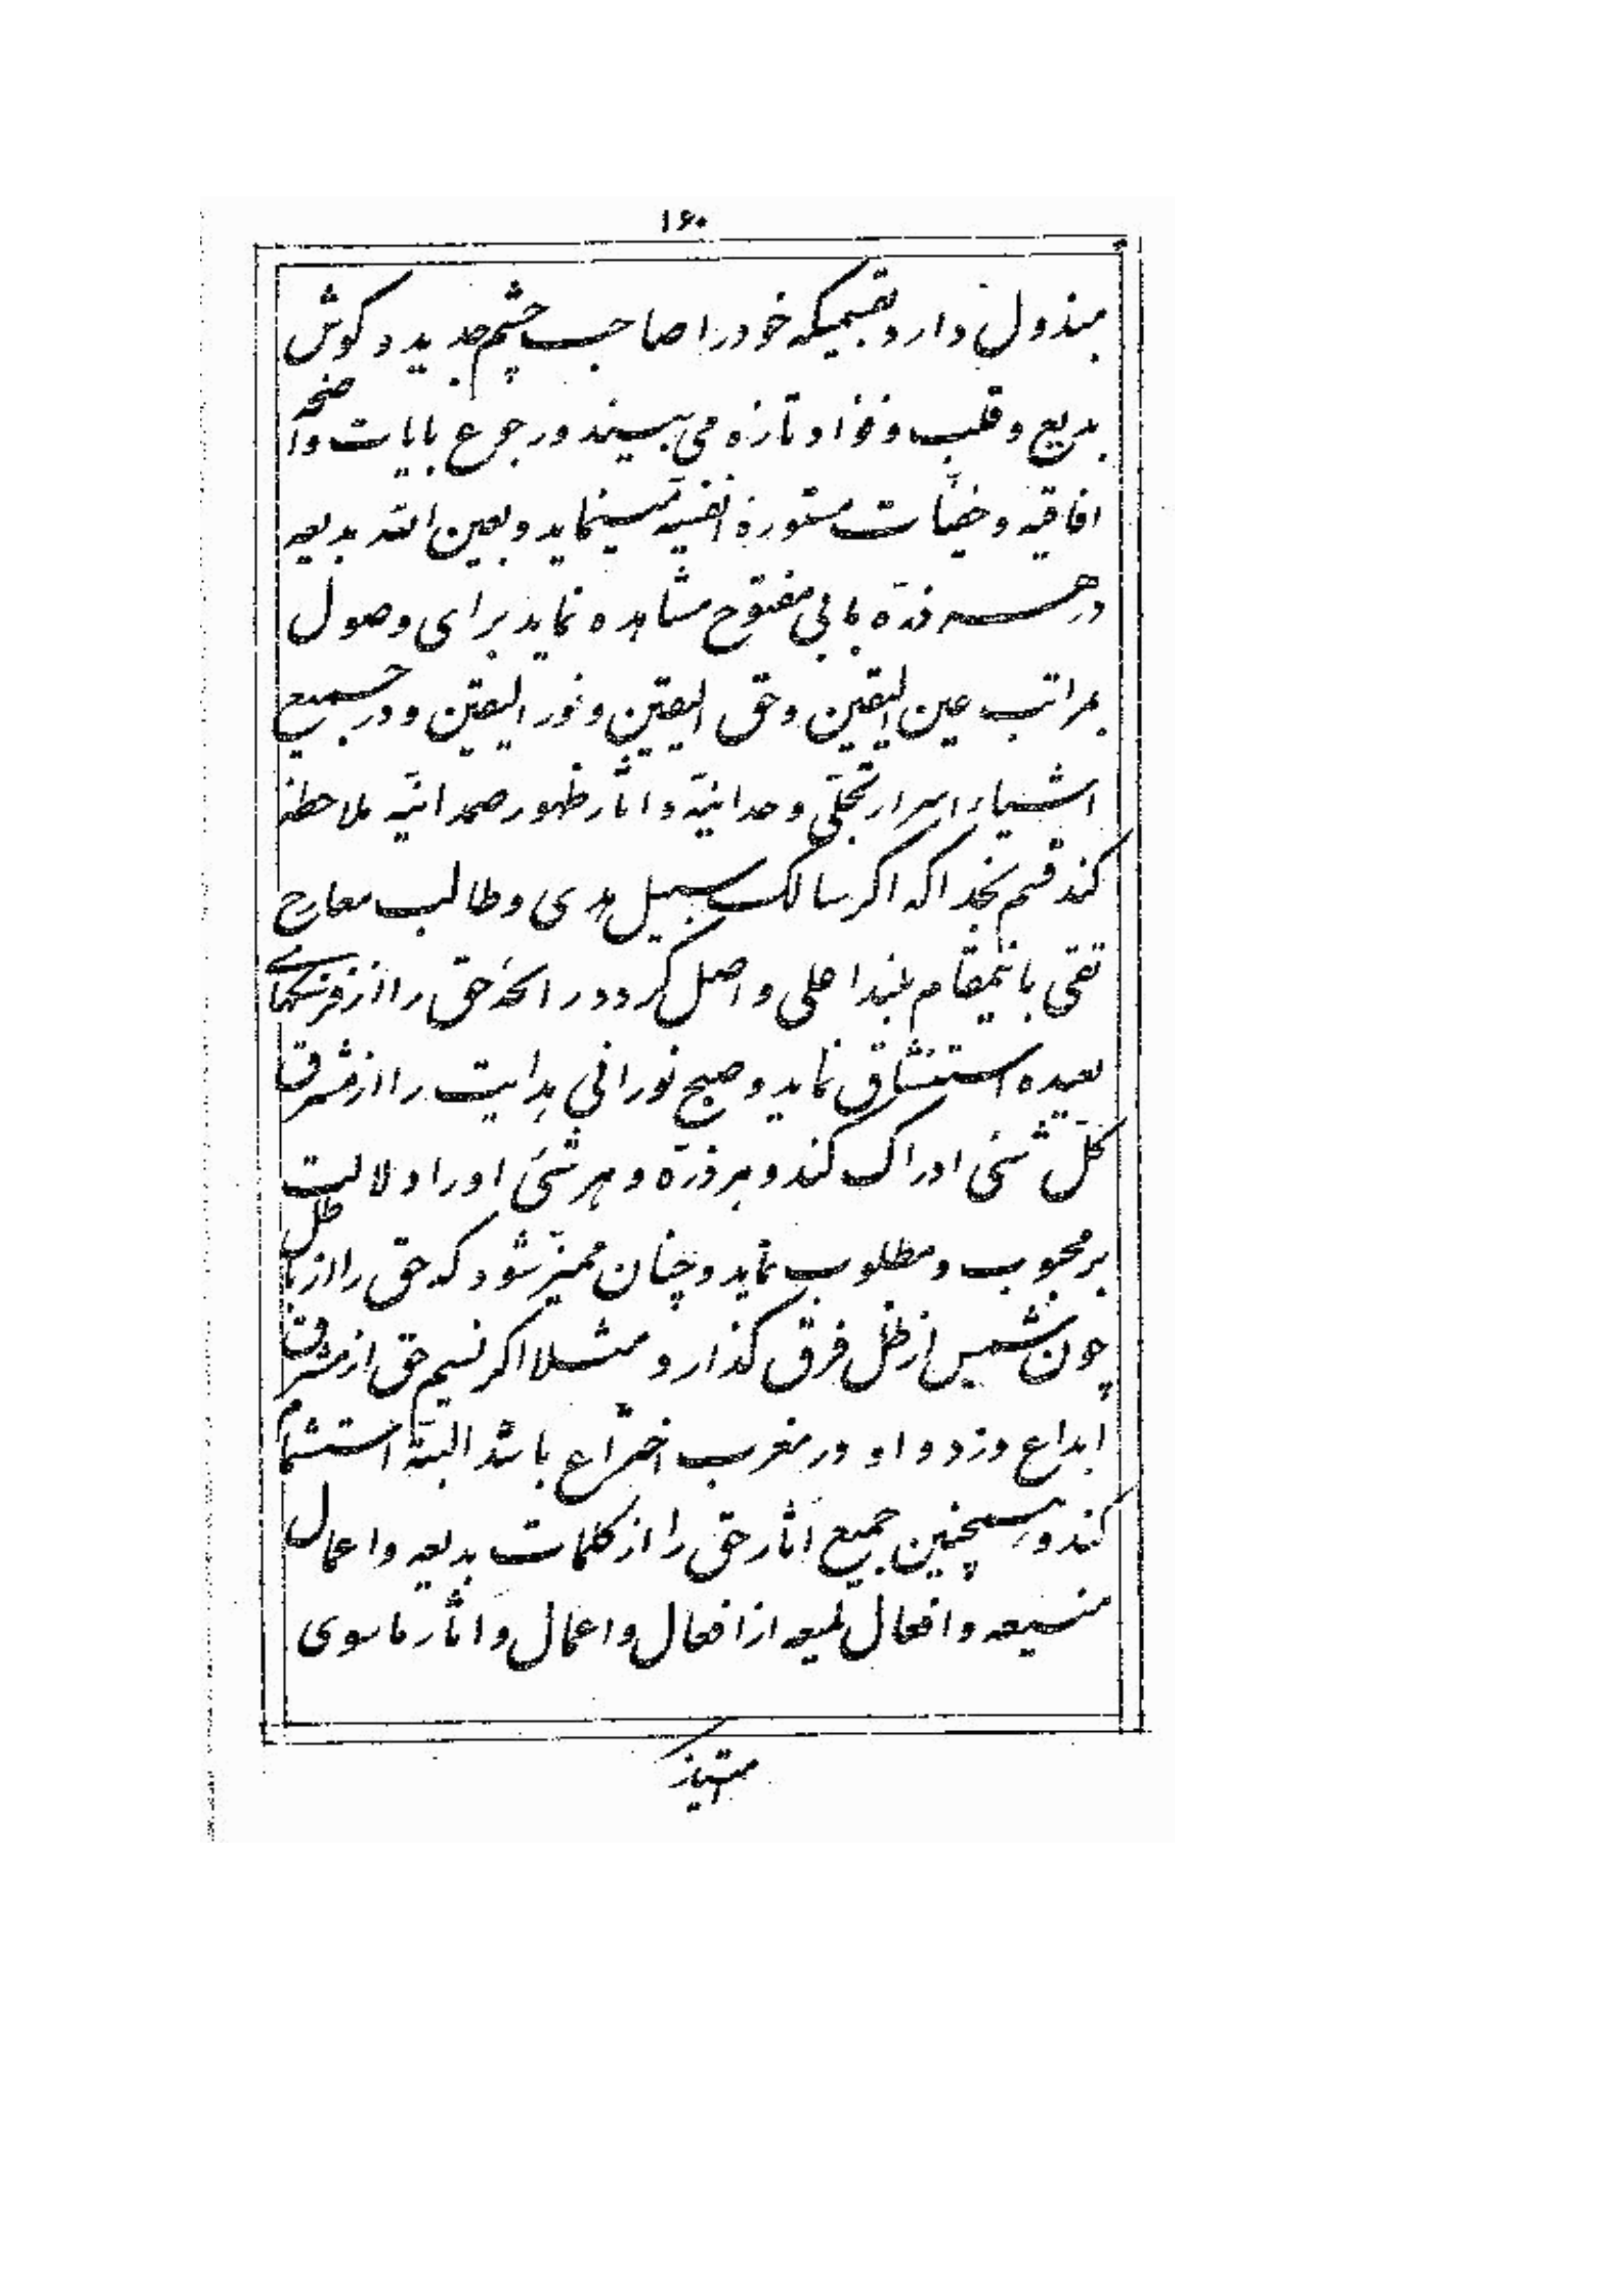 ۱۶۰
مبذول دارد بقسمیکه خود را صاحب چشم جدید و کوش
بدیع و قلب و فؤاد تازه می بیند و رجوع بایات واضحه
افاقیه و خفیّات مستورهٔ انفسیه مینماید و بعین الله بدیعه
در هر ذرّه بابی مفتوح مشاهده نماید برای وصول
بمراتب عین الیقین و حق الیقین و نور الیقین و در جمیع
اشیاء اسرار تجلّی وحدانیّه و اثار ظهور صمدانیّه ملاحظه
کند قسم بخدا که اکر سالک سبیل هدی و طالب معارج
تقی باینمقام بلند اعلی واصل کردد رائحهٔ حق را از فرسنکهای
بعیده استنشاق نماید و صبح نورانی هدایت را از مشرق
کلّ شئی ادراک کند و هر ذرّه و هر شئ او را دلالت
بر محبوب و مطلوب نماید و چنان ممیّز شود که حق را از باطل
چون شمس از ظل فرق کذارد مثلا اکر نسیم حق از مشرق
ابداع وزد و او در مغرب اختراع باشد البتّه استشمام
کند و همچنین جمیع اثار حق را از کلمات بدیعه و اعمال
منیعه و افعال لمیعه از افعال و اعمال و اثار ماسوی